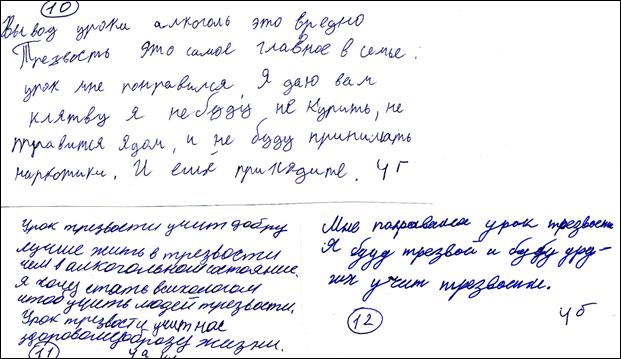 10
Вывод урока алкоголь это вредно
Трезвость это самое главное в семье.
урок мне понравился, Я даю вам
клятву я небуду не курить, не
травится ядом, и не буду принимать
наркотики. И ещё приходите. 4 Г
Урок трезвости учит добру
лучше жить в трезвости
чем в алкогольном состояние.
Я хочу стать психологом
чтоб учить людей трезвости.
Урок трезвости учит нас
здоровому образу жизни.
11 4а
Мне понравился урок трезвости
Я буду трезвой и буду дру-
гих учит трезвости.
12 4б